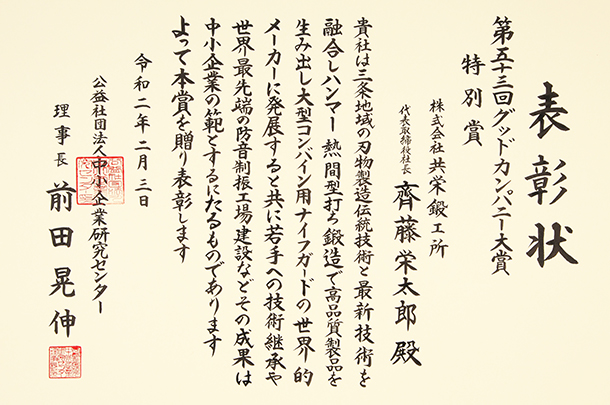 表彰状
第五十三回グッドカンパニー大賞
特別賞
株式会社共栄鍛工所
代表取締役社長 齊藤栄太郎殿
貴社は三条地域の刃物製造伝統技術と最新技術を
融合しハンマー熱間型打ち鍛造で高品質製品を
生み出し大型コンバイン用ナイフガードの世界的
メーカーに発展すると共に若手への技術継承や
世界最先端の防音制振工場建設などその成果は
中小企業の範とするにたるものであります
よって本賞を贈り表彰します
令和二年二月三日
公益社団法人中小企業研究センター
理事長 前田晃伸